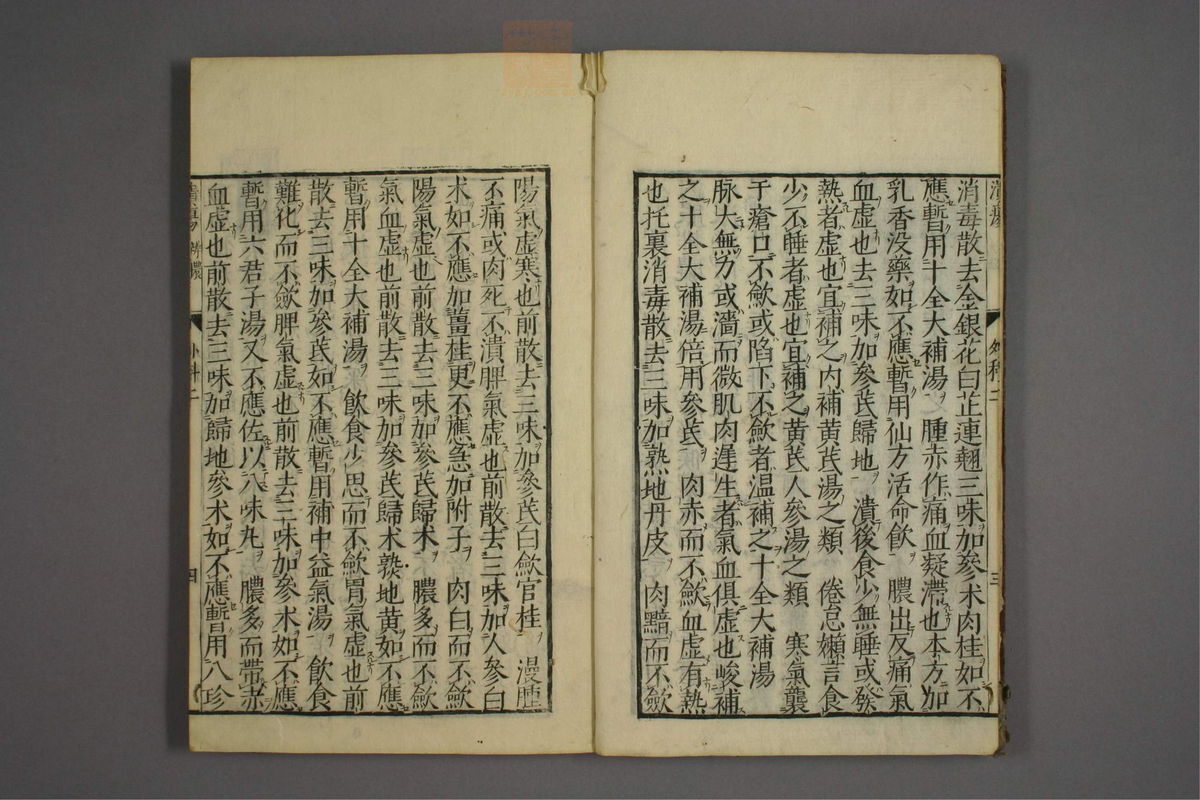 消毒散去金銀花白芷連翹三味加參术肉桂如不
應暫用十全大補湯　腫赤作痛血凝滯也本方加
乳香沒藥如不應暫用仙方活命飲　膿出反痛氣
血虛也去三味加參芪歸地　潰後食少無睡或發
熱者虛也宜補之内補黄芪湯之類　倦怠嬾言食
少不睡者虛也宜補之黄芪人參湯之類　寒氣襲
于瘡口不歛或陷下不歛者溫補之十全大補湯
脉大無力或濇而微肌肉遲生者氣血俱虛也峻補
之十全大補湯倍用參芪　肉赤而不歛血虛有熱
也托裏消毒散去三味加熟地丹皮　肉黯而不歛
外科二
三
陽氣虛寒也前散去三味加參芪白歛官桂　漫腫
不痛或肉死不潰脾氣虛也前散去三味加人參白
术如不應加薑桂更不應急加附子　肉白而不歛
陽氣虛也前散去三味加參芪歸术　膿多而不歛
氣血虛也前散去三味加參芪歸术熟地黄如不應
暫用十全大補湯　飲食少思而不歛胃氣虛也前
散去三味加參芪如不應暫用補中益氣湯　飲食
難化而不歛脾氣虛也前散去三味加參术如不應
暫用六君子湯又不應佐以八味丸　膿多而帶赤
血虛也前散去三味加歸地參术如不應暫用八珍
外科二
四